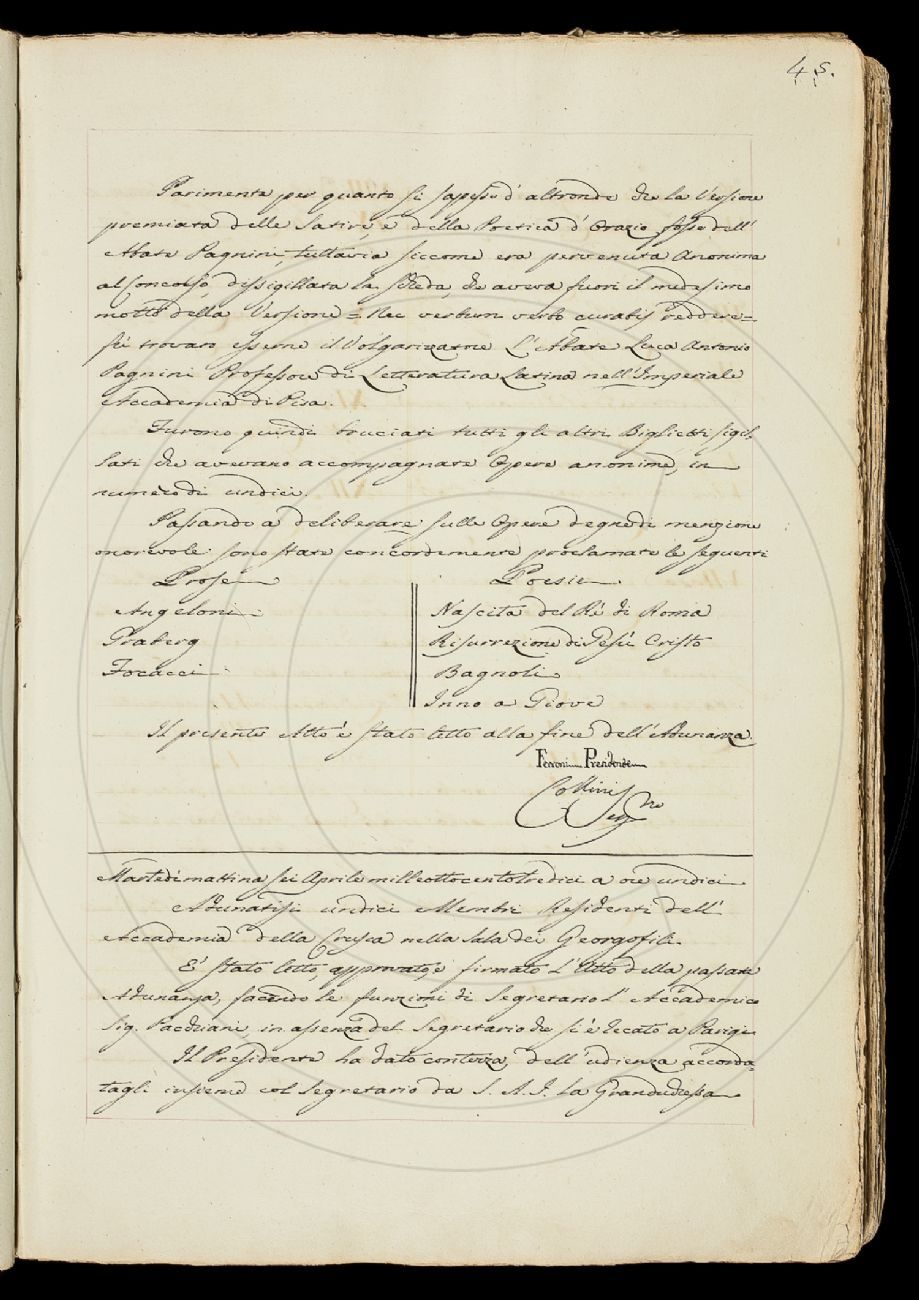 45.
Parimente per quanto si sapesse d'altronde che la Versione
premiata delle Satire, e della Poetica d'Orazio fosse dell'
Abate Pagnini, tuttavia siccome era pervenuta Anonima
al Concorso, dissigillata la Scheda, che aveva fuori il medesimo
motto della Versione = Nec verbum verbo curabis reddere =
si trovarono esserne il Volgarizzatore L'Abate Luca Antonio
Pagnini Professore di Letteratura Latina nell'Imperiale
Accademia di Pisa.
Furono quindi bruciati tutti gli altri Biglietti sigil-
lati che avevano accompagnate Opere anonime, in
numero di undici.
Passando a deliberare sulle Opere degne di menzione
onorevole sono state concordemente proclamate le seguenti
Prose Poesie
Angeloni Nascita del Rè di Roma
Graberg Risurrezione di Gesù Cristo
Focacci Bagnoli
Inno a Giove
Il presente Atto è stato letto alla fine dell'Adunanza
Feroni Presidente
Collini
Seg.rio
Martedì mattina sei Aprile milleottocentotredici a ore undici
Adunatisi undici Membri Residenti dell'
Accademia della Crusca nella Sala dei Georgofili.
E' stato letto, approvato, e firmato L'Atto della passata
Adunanza, facendo le funzioni di Segretario l'Accademico
Sig. Pacchiani in assenza del Segretario che si è recato a Parigi
Il Presidente ha dato contezza, dell'udienza accorda-
tagli insieme col Segretario da S. A. I. La Granduchessa